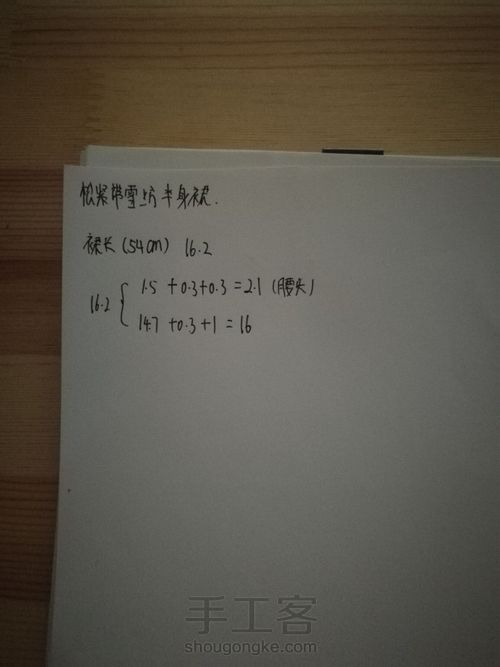 松紧带雪纺半身裙.
裙长(54cm) 16.2
16.2 {
1.5 + 0.3 + 0.3 = 2.1 (腰头)
14.7 + 0.3 + 1 = 16
手工客
shougongke.com